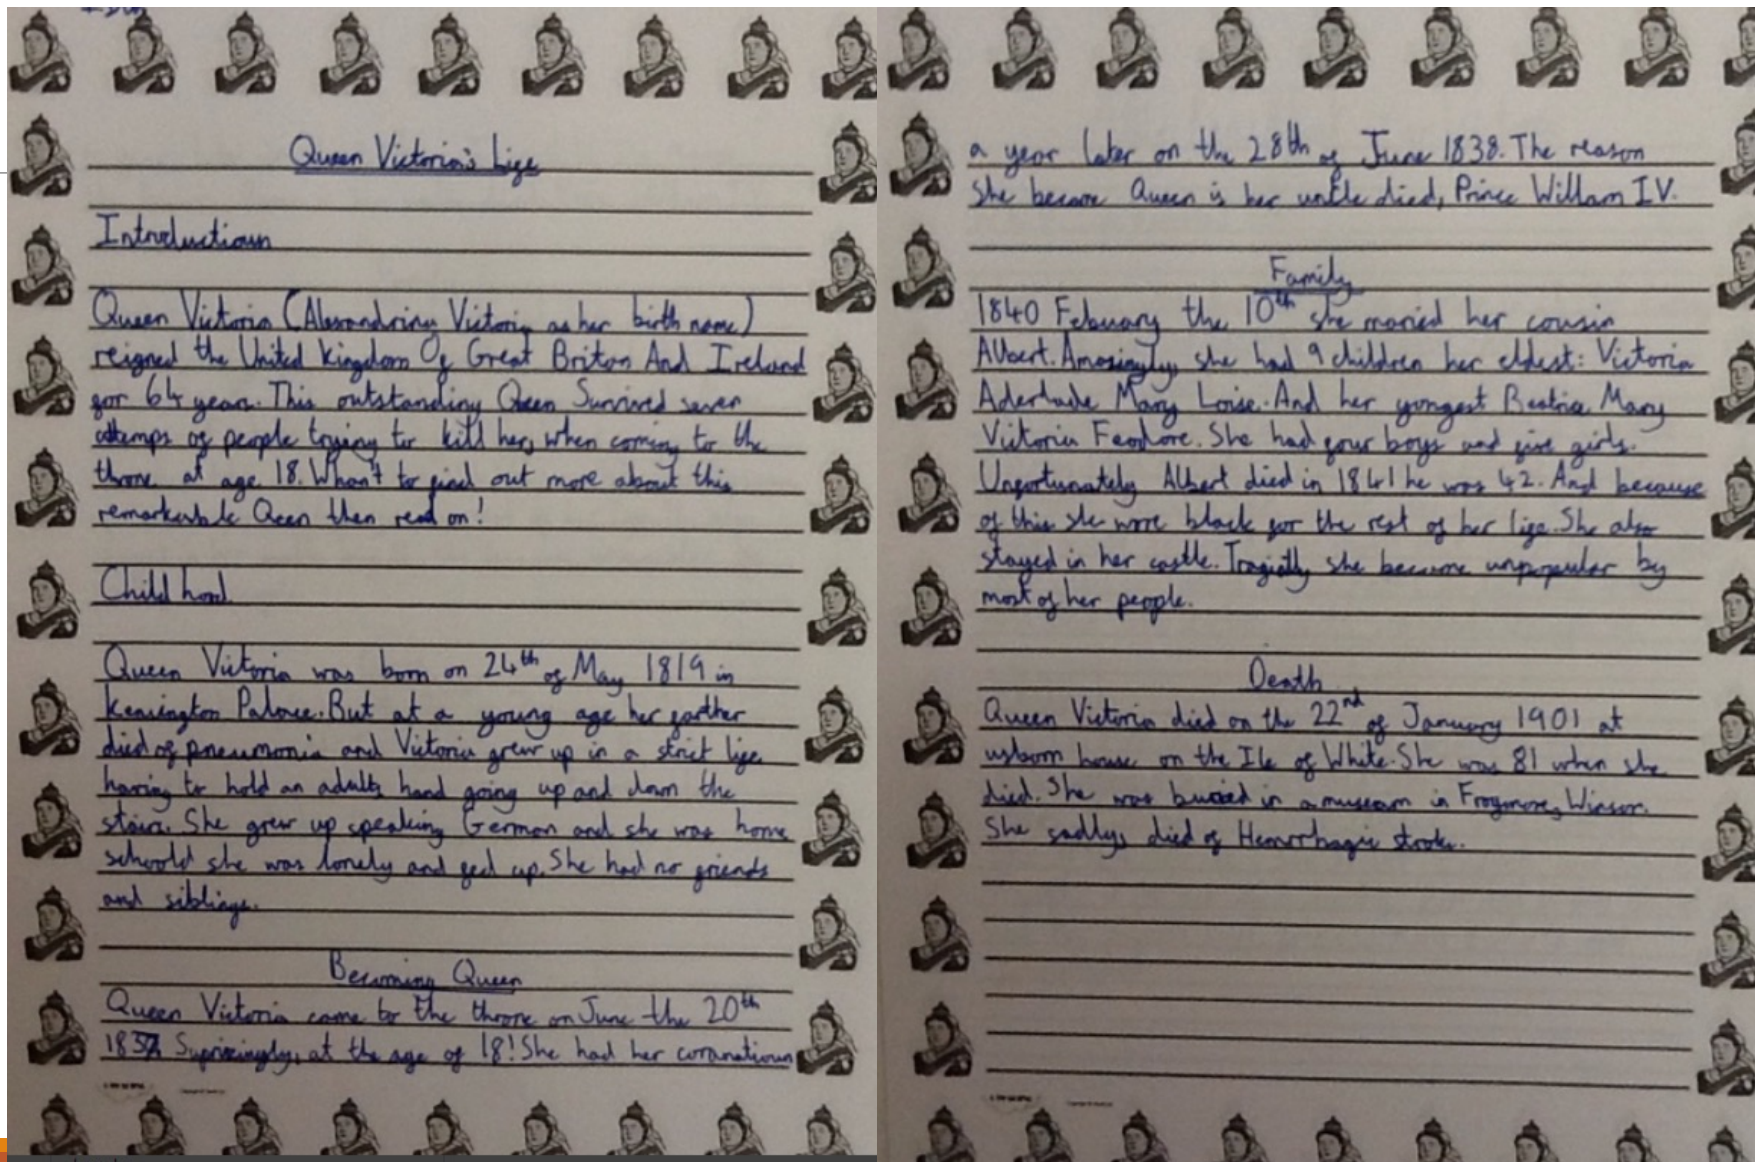 Queen Victoria's Life
Introductioun
Queen Victoria (Alexandriny Victoria as her birth name)
reigned the United kingdom Of Great Briton And Ireland
for 64 years. This outstanding Queen Survived seven
attemps of people trying to kill her, when coming to the
throne at age 18. Whan't to find out more about this
remarkable Qeen then read on!
Child hood
Queen Victoria was born on 24th of May 1819 in
Kensington Palace. But at a young age her farther
died of pneumonia and Victoria grew up in a strict life
having to hold an adults hand going up and down the
stairs. She grew up speaking German and she was home
schoold she was lonely and fed up. She had no friends
and siblings.
Becoming Queen
Queen Victoria came to the throne on June the 20th
1837 Suprisingly, at the age of 18! She had her coranatioun
a year later on the 28th of June 1838. The reason
she became Queen is her unlle died, Prince Willam IV.
Family
1840 Febuary the 10th she maried her cousin
Albert. Amasingly, she had 9 children her eldest: Victoria
Aderlaide Mary Loise. And her yongest Beatrice Mary
Victoria Feodore. She had four boys and five girls.
Unfortunately Albert died in 1841 he was 42. And because
of this she wore black for the rest of her life. She also
stayed in her castle. she became unpopular by
most of her people.
Death
Queen Victoria died on the 22nd of January 1901 at
usborn house on the Ile of White. She was 81 when she
died. She was buried in a museam in Frogmore, Winsor.
She sadly, died of Hemorrhagic stroke.